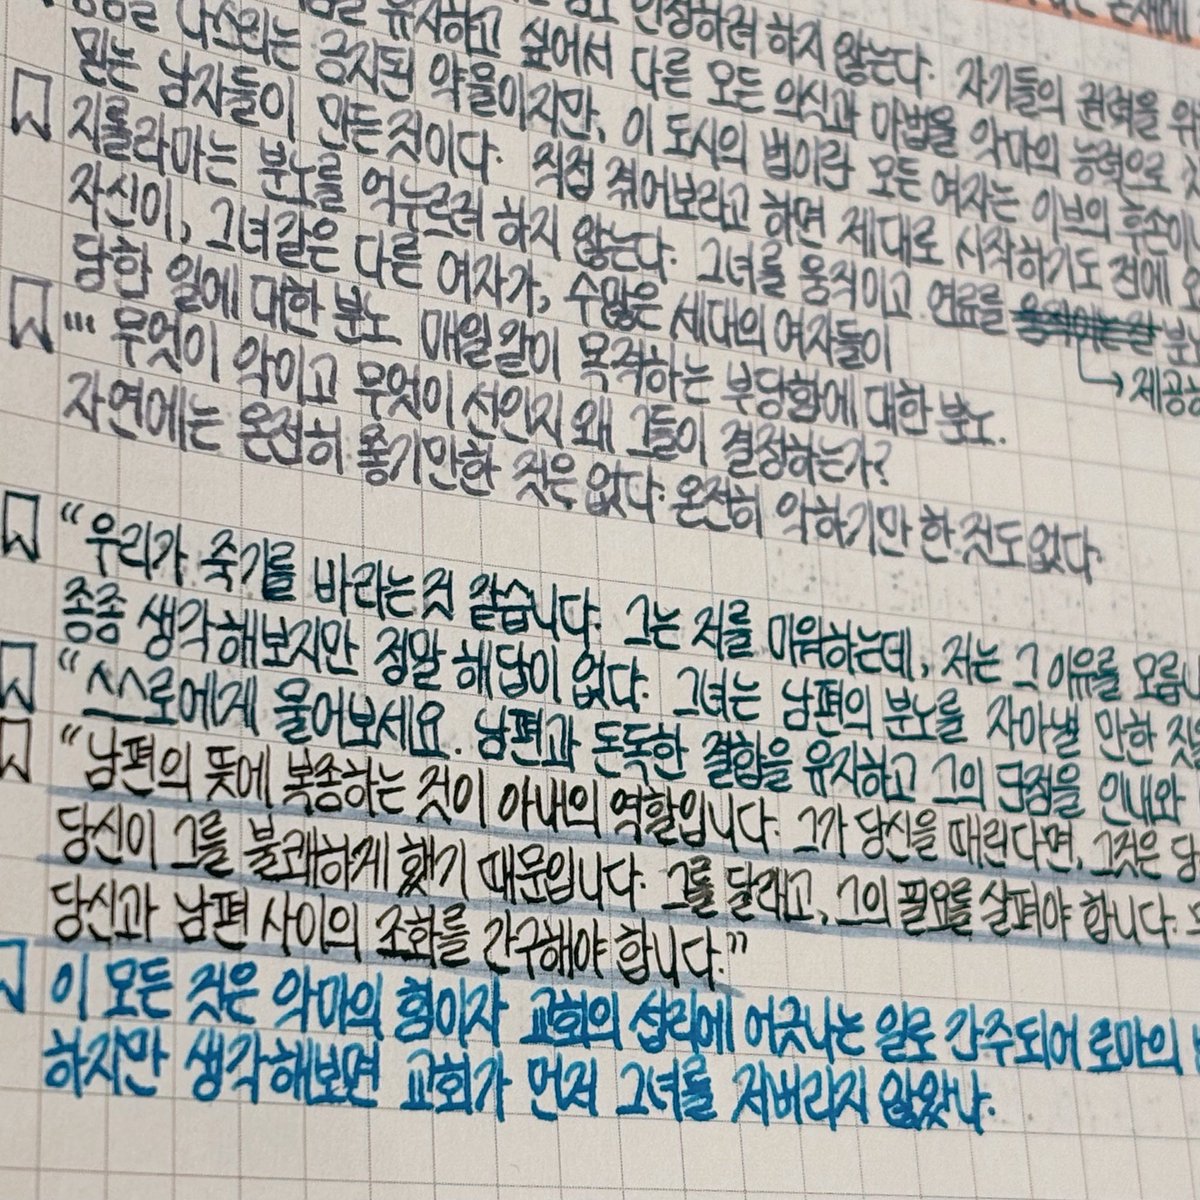 유지하고 싶어서 다른 모든 의식과 마법을 악마의 능력으로
다스리는 금지된 약물이지만, 이 도시의 법이란 모든 여자는 이브의 후손이
믿는 남자들이 만든 것이다. 직접 쥐어보라고 하면 제대로 시작하기도 전에
지롤라마는 분노를 억누르려 하지 않는다. 그녀를 움직이고 연료를 분노
→ 제공하
자신이, 그녀같은 다른 여자가, 수많은 세대의 여자들이
당한 일에 대한 분노. 매일같이 목격하는 부당함에 대한 분노.
… 무엇이 악이고 무엇이 선인지 왜 그들이 결정하는가?
자연에는 온전히 좋기만한 것은 없다. 온전히 악하기만 한 것도 없다.
“우리가 죽기를 바라는 것 같습니다. 그는 저를 미워하는데, 저는 그 이유를 모릅니
종종 생각해보지만 정말 해답이 없다. 그녀는 남편의 분노를 자아낼 만한 짓을
“스스로에게 물어보세요. 남편과 돈독한 결합을 유지하고 그의 단점을 인내와
“남편의 뜻에 복종하는 것이 아내의 역할입니다. 그가 당신을 때린다면, 그것은 당
당신이 그를 불쾌하게 했기 때문입니다. 그를 달래고, 그의 필요를 살펴야 합니다.
당신과 남편 사이의 조화를 간구해야 합니다.”
이 모든 것은 악마의 형이자 교회의 섭리에 어긋나는 일로 간주되어 로마의
하지만 생각해보면 교회가 먼저 그녀를 저버리지 않았나.